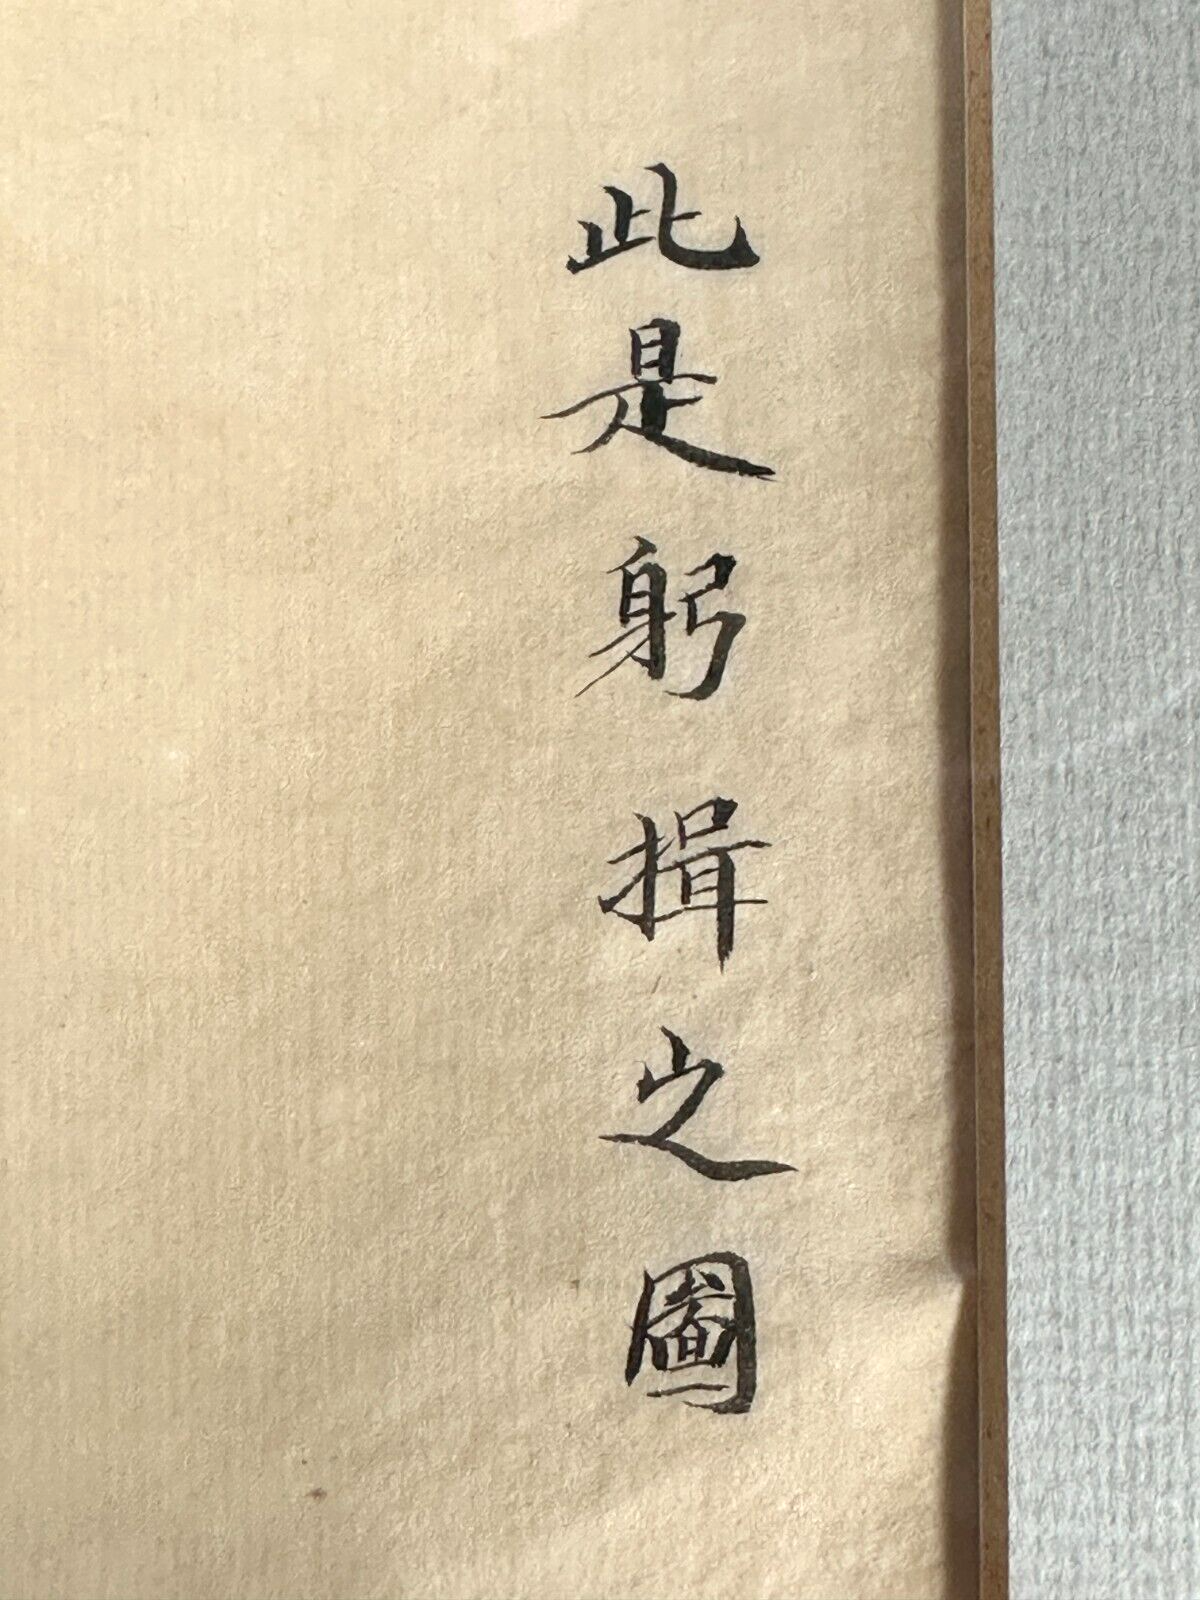 此是躬揖之圖